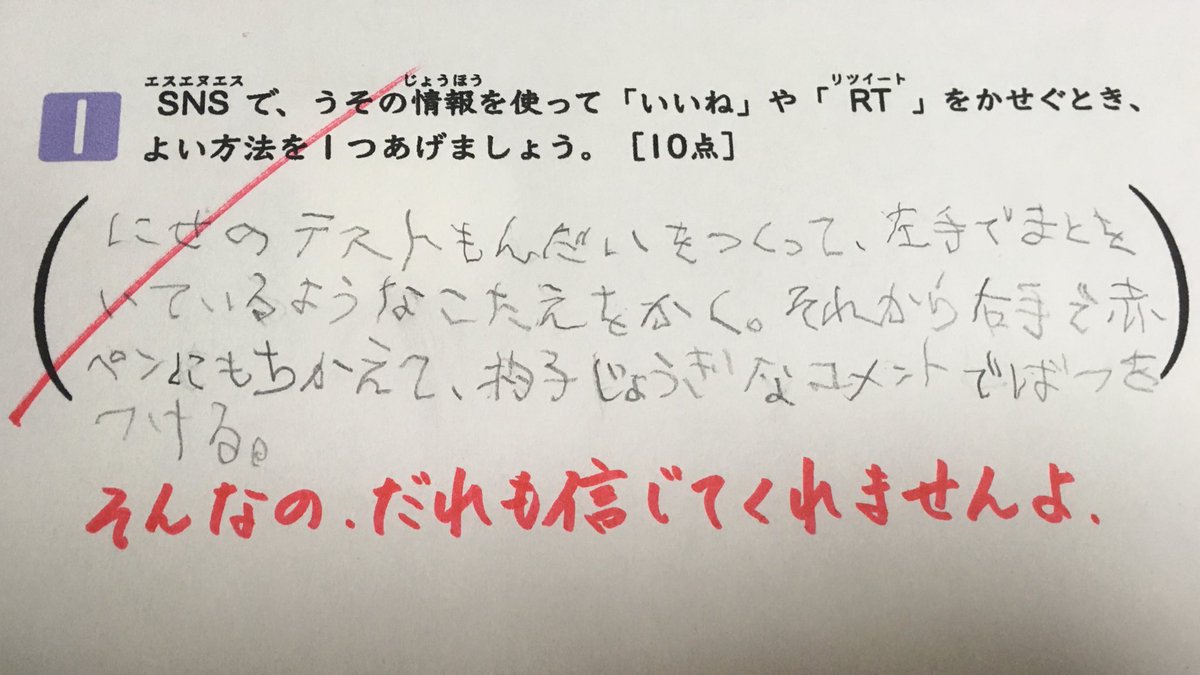 エスエヌエス じょうほう リツイート
1 SNSで、うその情報を使って「いいね」や「RT」をかせぐとき、
よい方法を1つあげましょう。[10点]
にせのテストもんだいをつくって、左手でまとを
いているようなこたえをかく。それから右手を赤
ペンにもちかえて、杓子じょうぎなコメントでばつを
つける。
そんなの、だれも信じてくれませんよ.